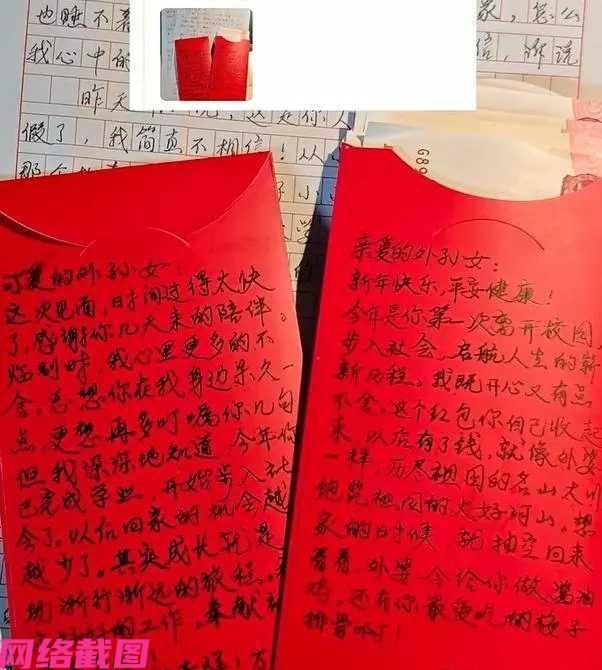 也睡不着
家，怎么
我心中的
信，诉说
昨天
这是你人
假了，我简直不相信！从
那个
G8
可爱的外孙女：
这次见面，时间过得太快
了，感谢你几天来的陪伴。
临别时，我心里更多的不
舍。总想你在我身边呆久一
点，更想再多叮嘱你几句
但我深深地知道，今年你
已完成学业，开始步入社
会了。以后回家的机会越
越少了。其实成长就是
场渐行渐远的旅程。
好的工作，奉献
亲爱的外孙女：
新年快乐，平安健康！
今年是你第一次离开校园，
步入社会，启航人生的崭
新历程。我既开心又有点
不舍。这个红包你自己收起
来，以后有了钱，就像外婆
一样，历尽祖国的名山大川
饱览祖国的大好河山。想
家的时候，就抽空回来
看看，外婆会给你做酱油
鸡，还有你最爱吃的梅子
排骨啊！
网络截图